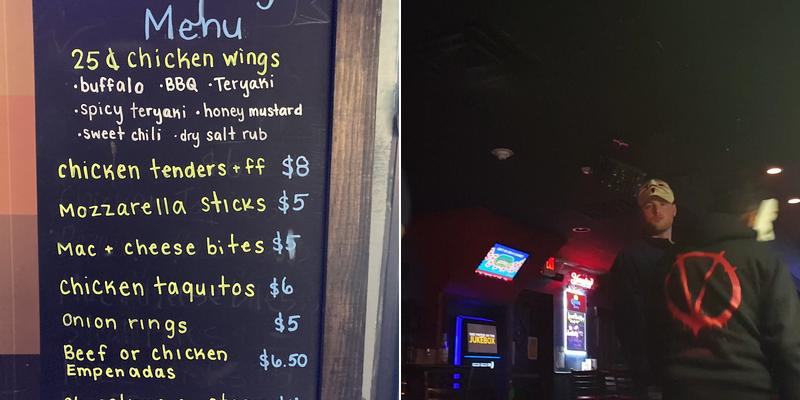 Menu
25¢ chicken wings
•buffalo •BBQ •Teryaki
•spicy teryaki •honey mustard
•sweet chili •dry salt rub
chicken tenders + ff $8
Mozzarella sticks $5
Mac + cheese bites $5
chicken taquitos $6
onion rings $5
Beef or chicken $6.50
Empenadas
JUKEBOX